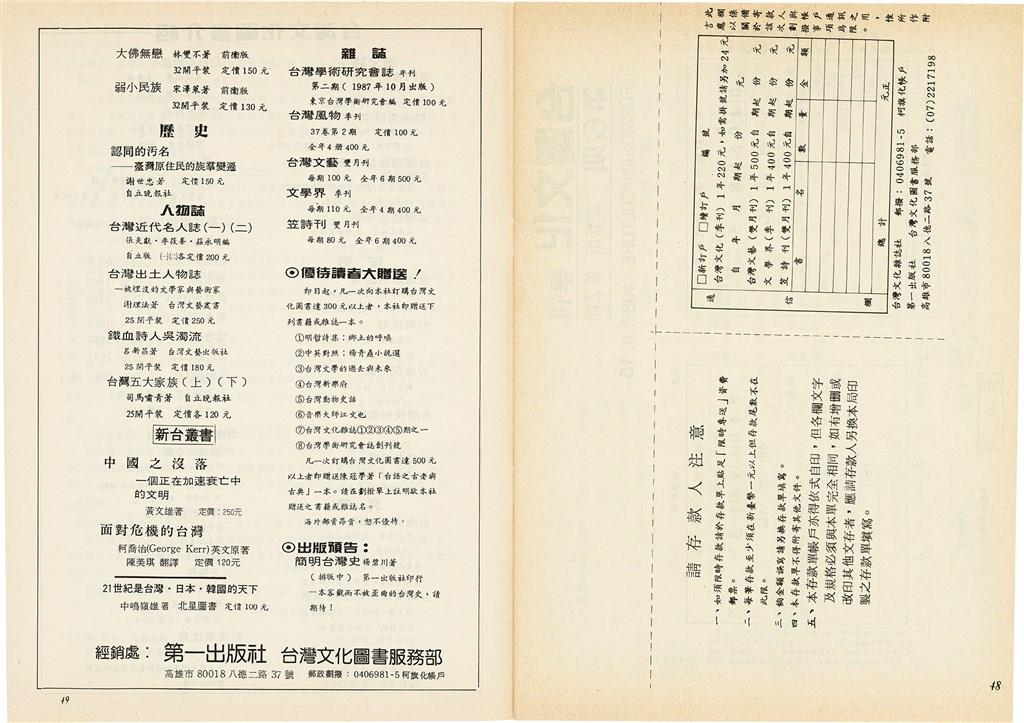 大佛無戀 林雙不著 前衛版
32開平裝 定價150元
弱小民族 宋澤萊著 前衛版
32開平裝 定價130元
歷史
認同的汚名
——臺灣原住民的族羣變遷
謝世忠著 定價150元
自立晚報社
人物誌
台灣近代名人誌(一)(二)
張炎獻·李筱峯·莊永明編
自立版 ㈠㈡各定價200元
台灣出土人物誌
—被埋沒的文學家與藝術家
謝理法著 台灣文藝叢書
25開平裝 定價250元
鐵血詩人吳濁流
呂新昌著 台灣文藝出版社
25開平裝 定價180元
台灣五大家族(上)(下)
司馬嘯青著 自立晚報社
25開平裝 定價各120元
新台叢書
中國之沒落
—個正在加速衰亡中
的文明
黃文雄著 定價:250元
面對危機的台灣
柯喬治(George Kerr)英文原著
陳美琪 翻譯 定價120元
21世紀是台灣·日本·韓國的天下
中嶋嶺雄著 北星圖書 定價100元
雜誌
台灣學術研究會誌 年刊
第二期(1987年10月出版)
東京台灣學術研究會編 定價100元
台灣風物 季刊
37卷第2期 定價100元
全年4冊400元
台灣文藝 雙月刊
每期100元 全年6期500元
文學界 季刊
每期110元 全年4期400元
笠詩刊 雙月刊
每期80元 全年6期400元
◎優待讀者大贈送!
即日起,凡一次向本社訂購台灣文
化圖書達300元以上者,本社即贈送下
列書籍或雜誌一本。
①明哲詩集:鄉土的呼喚
②中英對照:楊青矗小說選
③台灣文學的過去與未來
④台灣新樂府
⑤台灣動物史話
⑥音樂大師江文也
⑦台灣文化雜誌①②③④⑤期之一
⑧台灣學術研究會誌創刊號
凡一次訂購台灣文化圖書達500元
以上者即贈送陳冠學著「台語之古老與
古典」一本。請在劃撥單上註明欲本社
贈送之書籍或雜誌名。
海外郵資昂貴,恕不優待。
◎出版預告:
簡明台灣史 楊碧川著
(排版中) 第一出版社印行
一本客觀而不被歪曲的台灣史,請
期待!
經銷處:第一出版社 台灣文化圖書服務部
高雄市80018八德二路37號 郵政劃撥:0406981-5柯旗化帳戶
49
此欄係備寄款人與帳戶通訊之用,惟所作附
言應以關於該次劃撥事項爲限。
通信欄
□新訂戶 □續訂戶 編號
台灣文化(季刊)1年220元,如需掛號請另加24元
自 年 月 期起 份 元
台灣文藝(雙月刊)1年500元自 期起 份 元
文學界(季刊)1年400元自 期起 份 元
笠詩刊(雙月刊)1年400元自 期起 份 元
書名 數量 金額
總計 元正
台灣文化雜誌社 郵撥:0406981-5 柯旗化帳戶
第一出版社 台灣文化圖書服務部
高雄市80018八德二路37號 電話:(07)2217198
請存款人注意
一、如須限時存款請於存款單上貼足「限時專送」資費
郵票。
二、每筆存款至少須在新臺幣一元以上但存款尾數不在
此限。
三、倘金額誤寫請另換存款單填寫。
四、本存款單不得附寄其他文件。
五、本存款單帳戶亦得依式自印,但各欄文字
及規格必須與本單完全相同,如有增刪或
改印其他文存者,應請存款人另換本局印
製之存款單填寫。
48